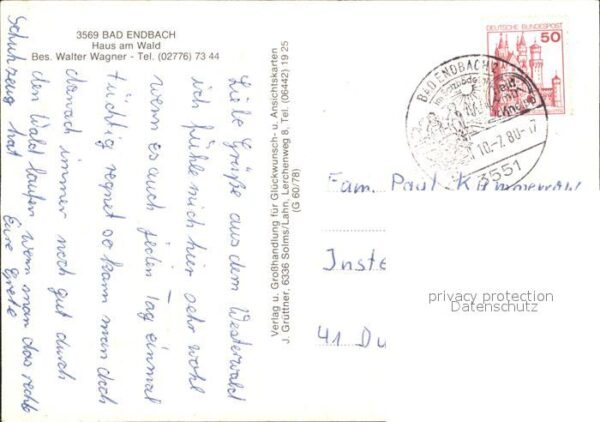 3569 BAD ENDBACH
Haus am Wald
Bes. Walter Wagner - Tel. (02776) 73 44
Liebe Grüße aus dem Westerwald
ich fühle mich hier sehr wohl
wenn es auch jeden Tag einmal
tüchtig regnet so kann man doch
danach immer noch gut durch
den Wald laufen wenn man das rechte
Schuhzeug hat
Eure Grete
Verlag u. Großhandlung für Glückwunsch- u. Ansichtskarten
J. Grüttner, 6336 Solms/Lahn, Lerchenweg 8, Tel. (06442) 19 25
(G 60/78)
DEUTSCHE BUNDESPOST
50
BAD ENDBACH
10.-7.80-17
3551
Fam. Paul
Inste
41 Du
privacy protection
Datenschutz